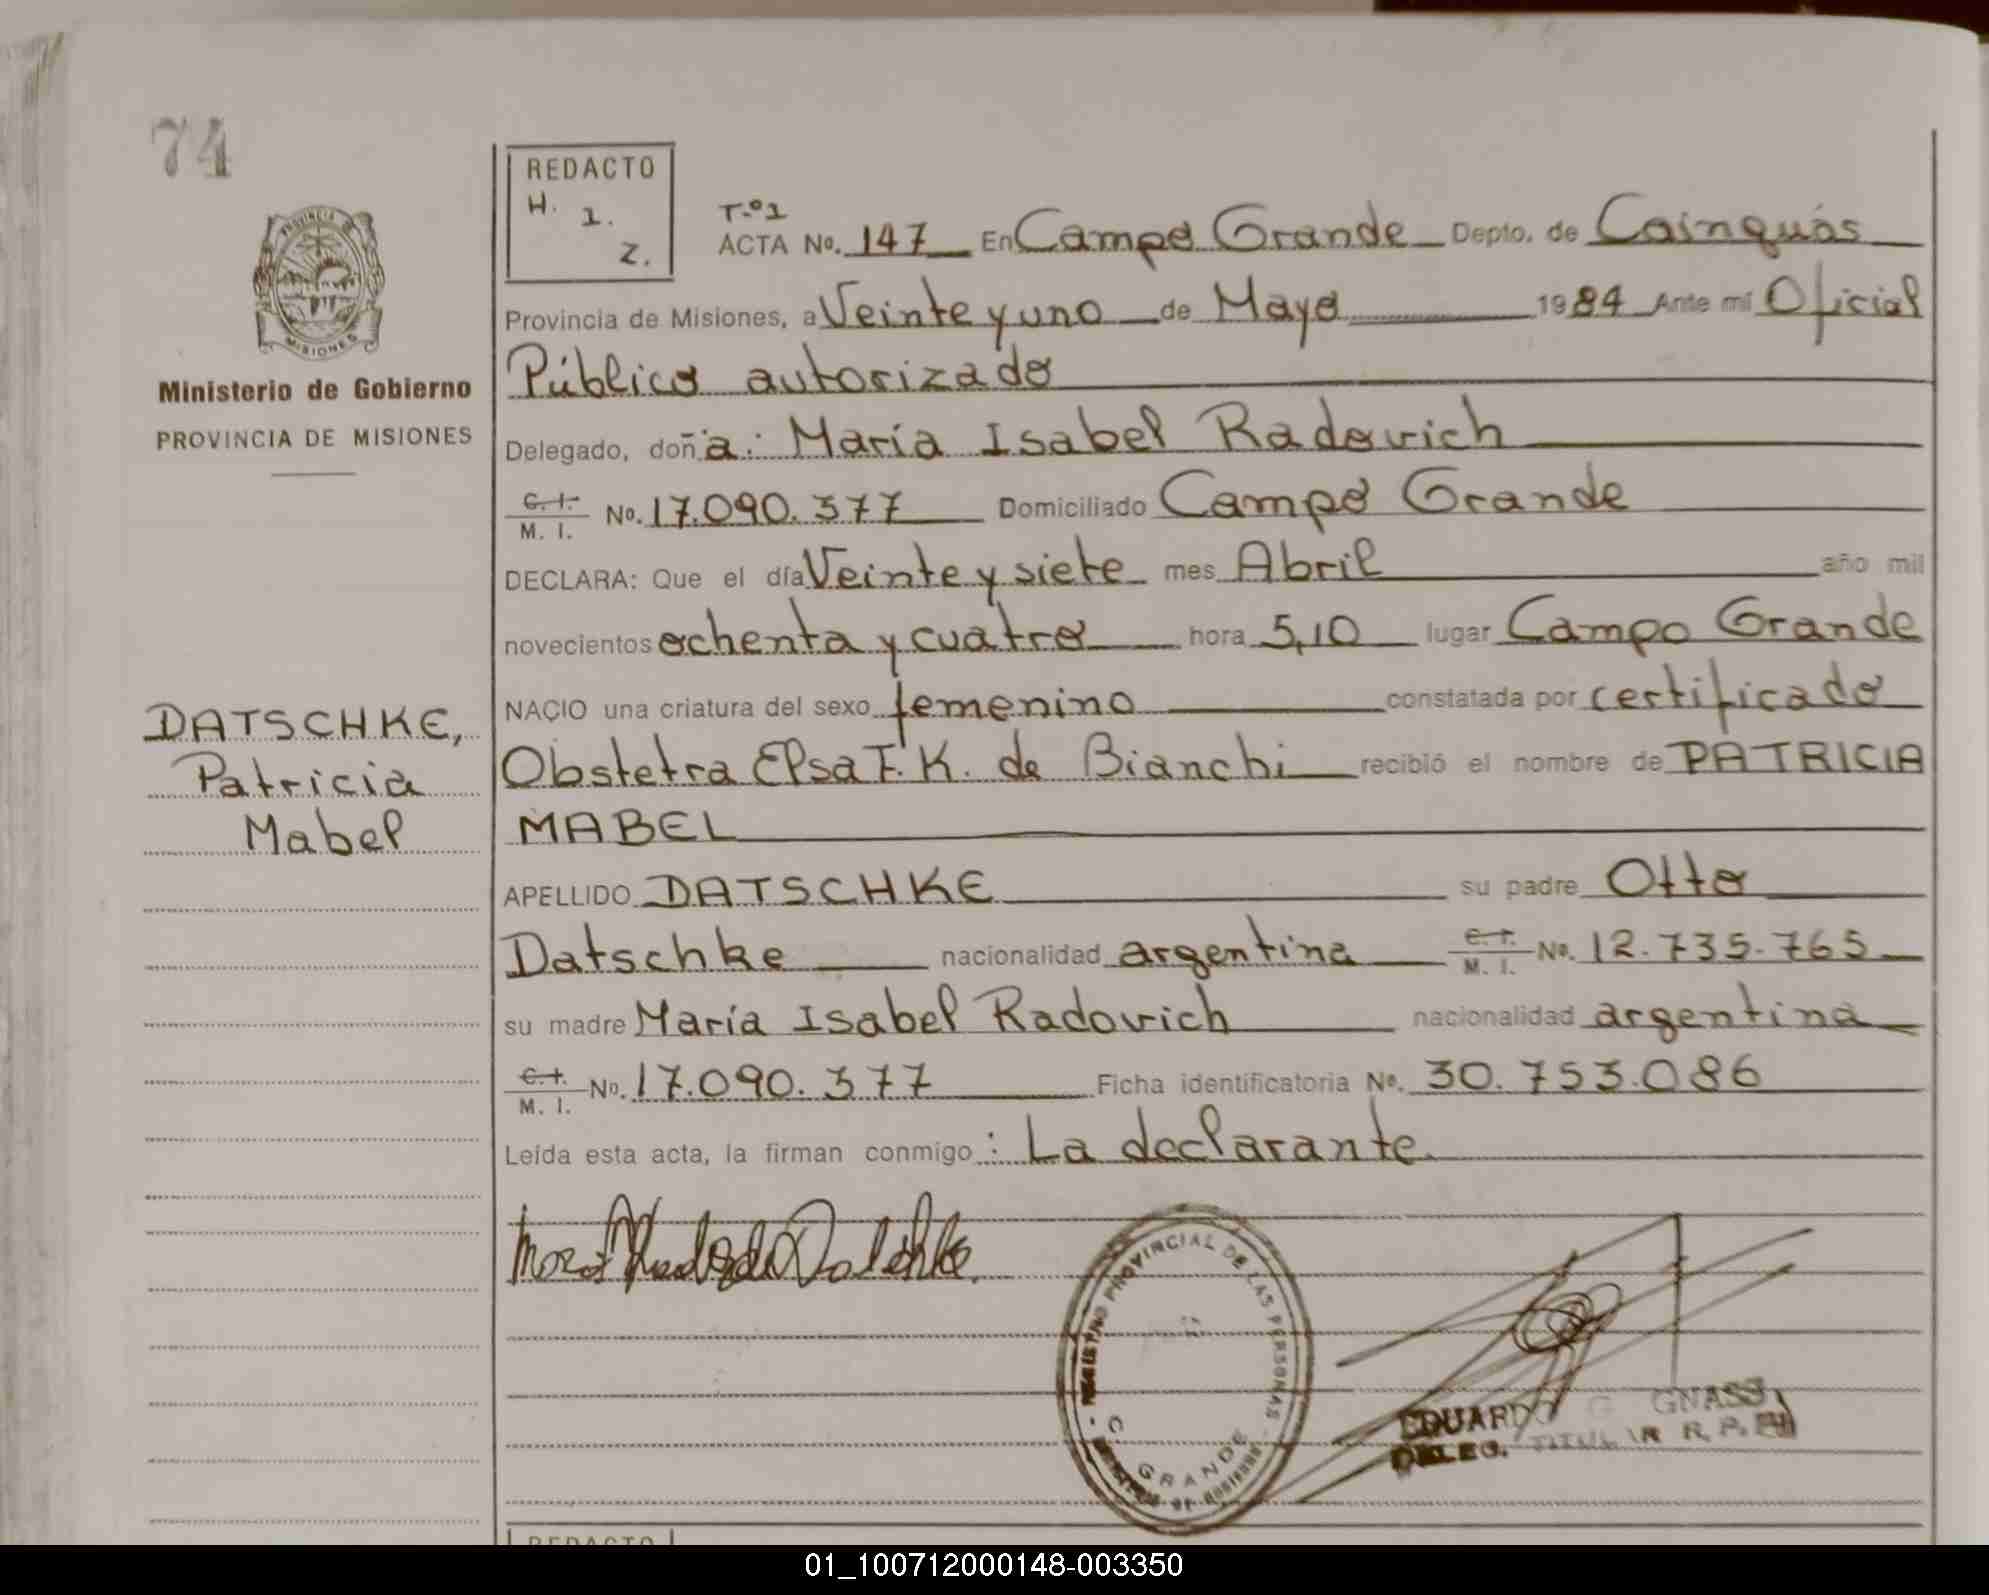 74
REDACTO
H. 1. Z.
T.º1
ACTA No. 147 En Campo Grande Depto. de Cainguás
Provincia de Misiones, a Veinte y uno de Mayo 1984 Ante mí Oficial
Público autorizado
Delegado, doña: María Isabel Radovich
C. I.
M. I. No. 17.090.377 Domiciliado Campo Grande
DECLARA: Que el día Veinte y siete mes Abril año mil
novecientos ochenta y cuatro hora 5,10 lugar Campo Grande
NACIO una criatura del sexo femenino constatada por certificado
Obstetra Elsa F. K. de Bianchi recibió el nombre de PATRICIA
MABEL
APELLIDO DATSCHKE su padre Otto
Datschke nacionalidad argentina C. I. M. I. No. 12.735.765
su madre María Isabel Radovich nacionalidad argentina
C. I.
M. I. No. 17.090.377 Ficha identificatoria No. 30.753.086
Leída esta acta, la firman conmigo: La declarante.
PROVINCIA
MISIONES
Ministerio de Gobierno
PROVINCIA DE MISIONES
DATSCHKE,
Patricia
Mabel
REGISTRO PROVINCIAL DE LAS PERSONAS
C. GRANDE
EDUARDO G GNASS
DELEG. TITULAR R. P.
REDACTO
01_100712000148-003350